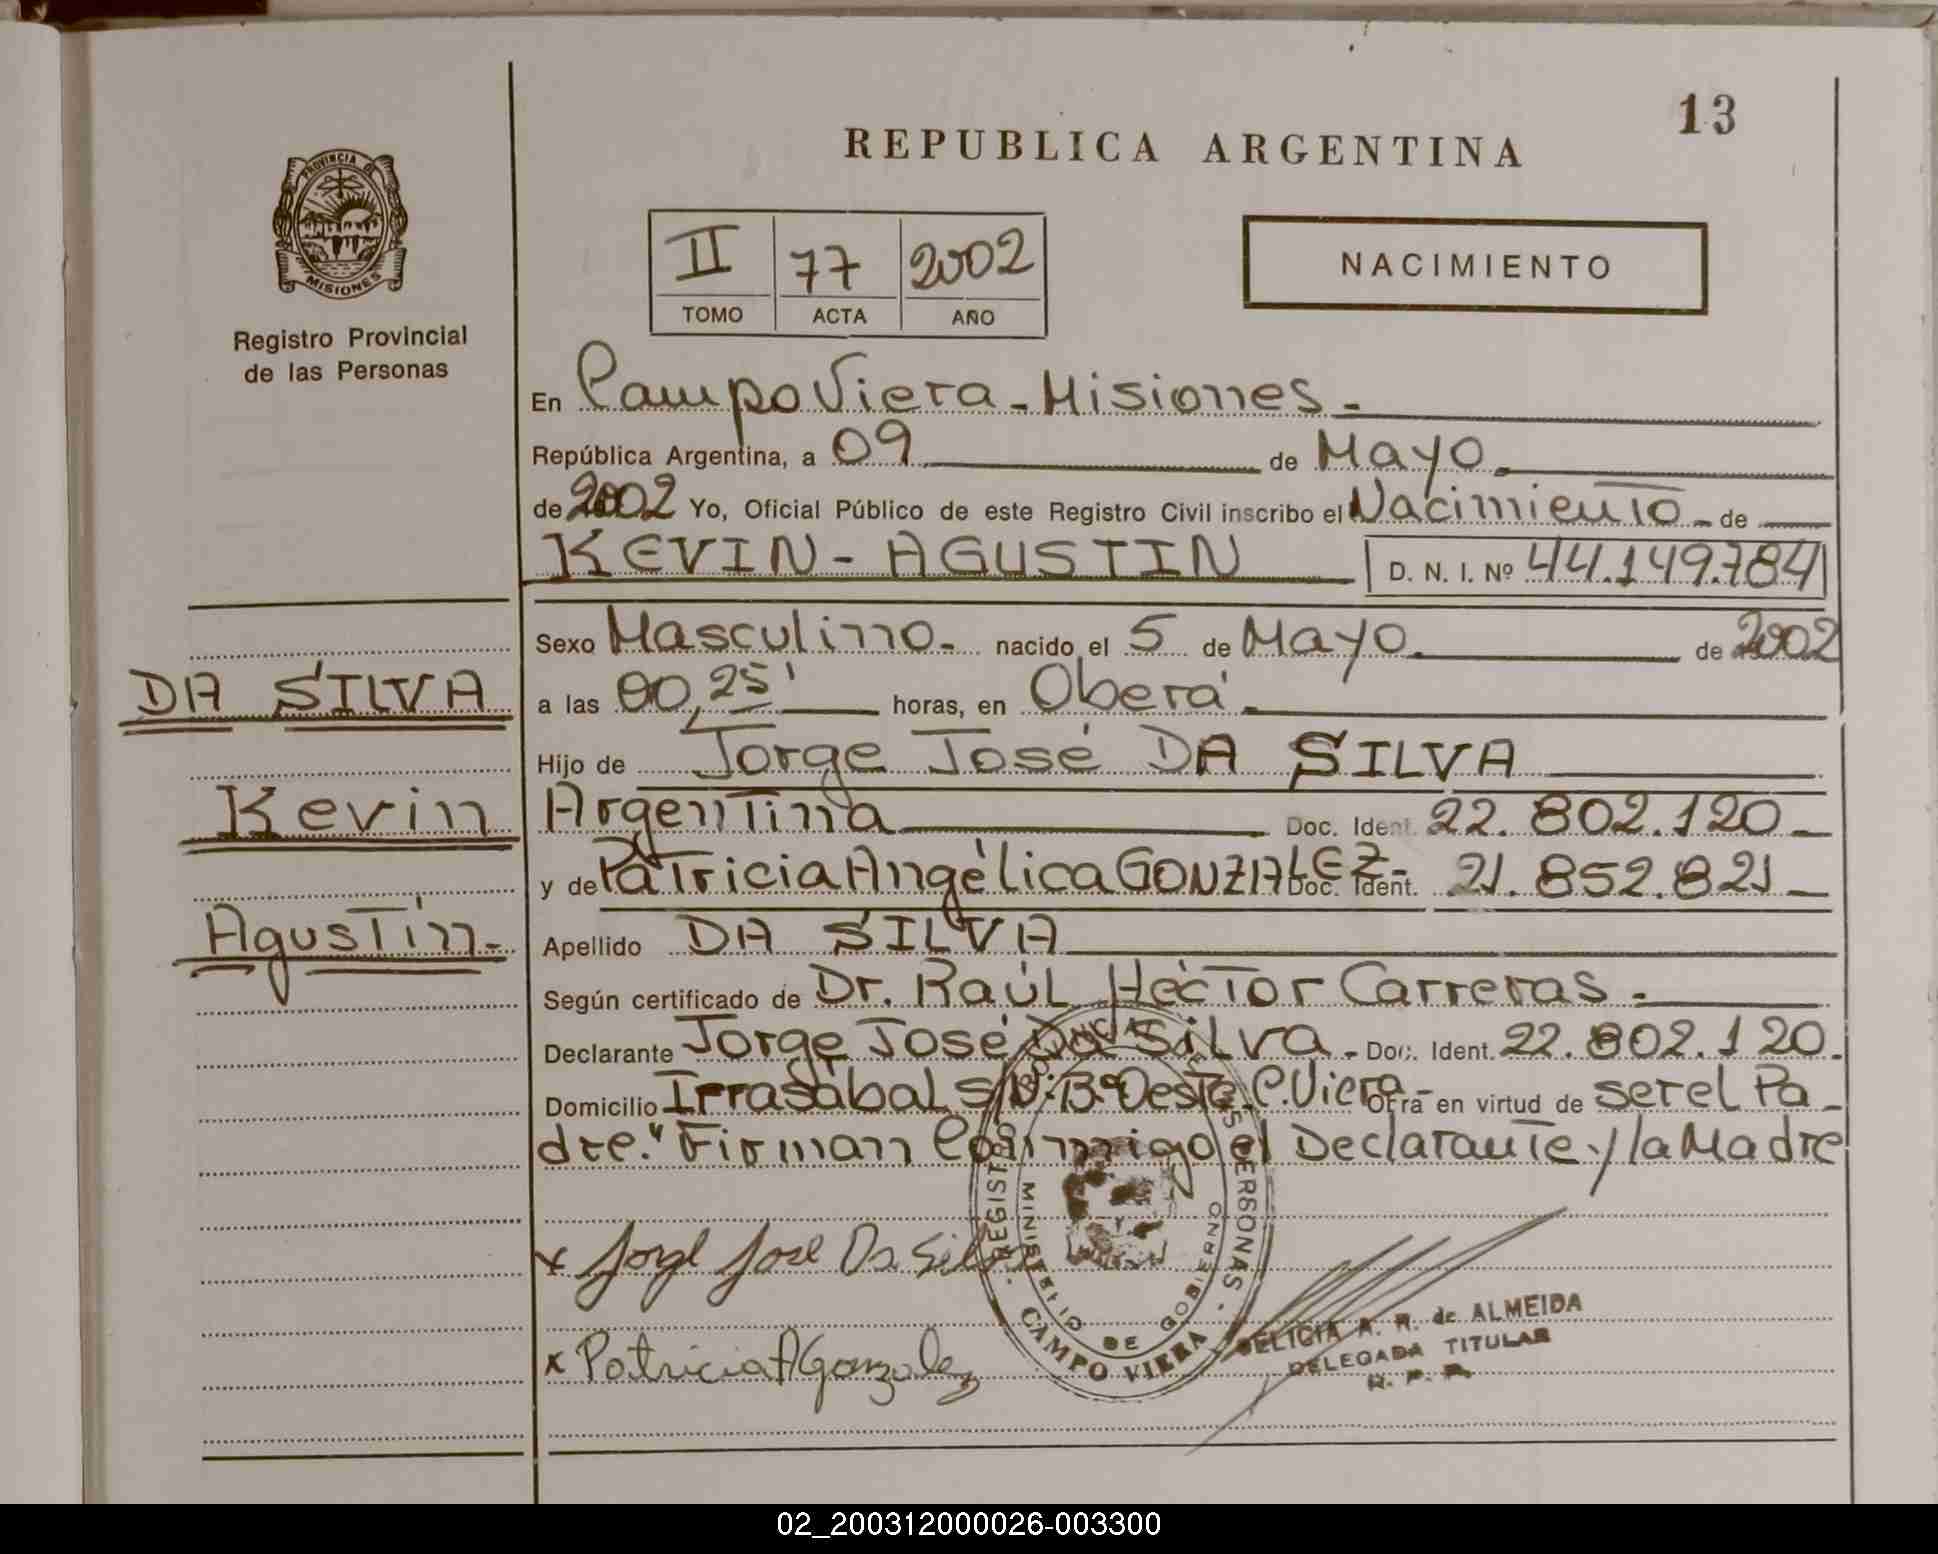 13
REPUBLICA ARGENTINA
PROVINCIA DE
MISIONES
Registro Provincial
de las Personas
II 77 2002
TOMO ACTA AÑO
NACIMIENTO
En Campo Viera - Misiones -
República Argentina, a 09 de Mayo
de 2002 Yo, Oficial Público de este Registro Civil inscribo el Nacimiento - de
KEVIN - AGUSTIN D. N. I. Nº 44.149.784
Sexo Masculino - nacido el 5 de Mayo de 2002
DA SILVA
a las 00,25' horas, en Oberá
Hijo de Jorge José DA SILVA
Kevin
Argentina Doc. Ident. 22.802.120 -
y de Patricia Angélica GONZALEZ - Doc. Ident. 21.852.821 -
Agustín -
Apellido DA SILVA
Según certificado de Dr. Raúl Héctor Carreras -
Declarante Jorge José Da Silva - Doc. Ident. 22.802.120.
Domicilio Irrasábal S/N: Bº Oeste C. Viera - Obra en virtud de ser el Pa-
dre." Firman Conmigo el Declarante y la Madre
x Jorge José Da Silva
x Patricia A Gonzalez
REGISTRO PROVINCIAL DE LAS PERSONAS - CAMPO VIERA
MINISTERIO DE GOBIERNO
DELICIA A. R. de ALMEIDA
DELEGADA TITULAR
R. P. P.
02_200312000026-003300